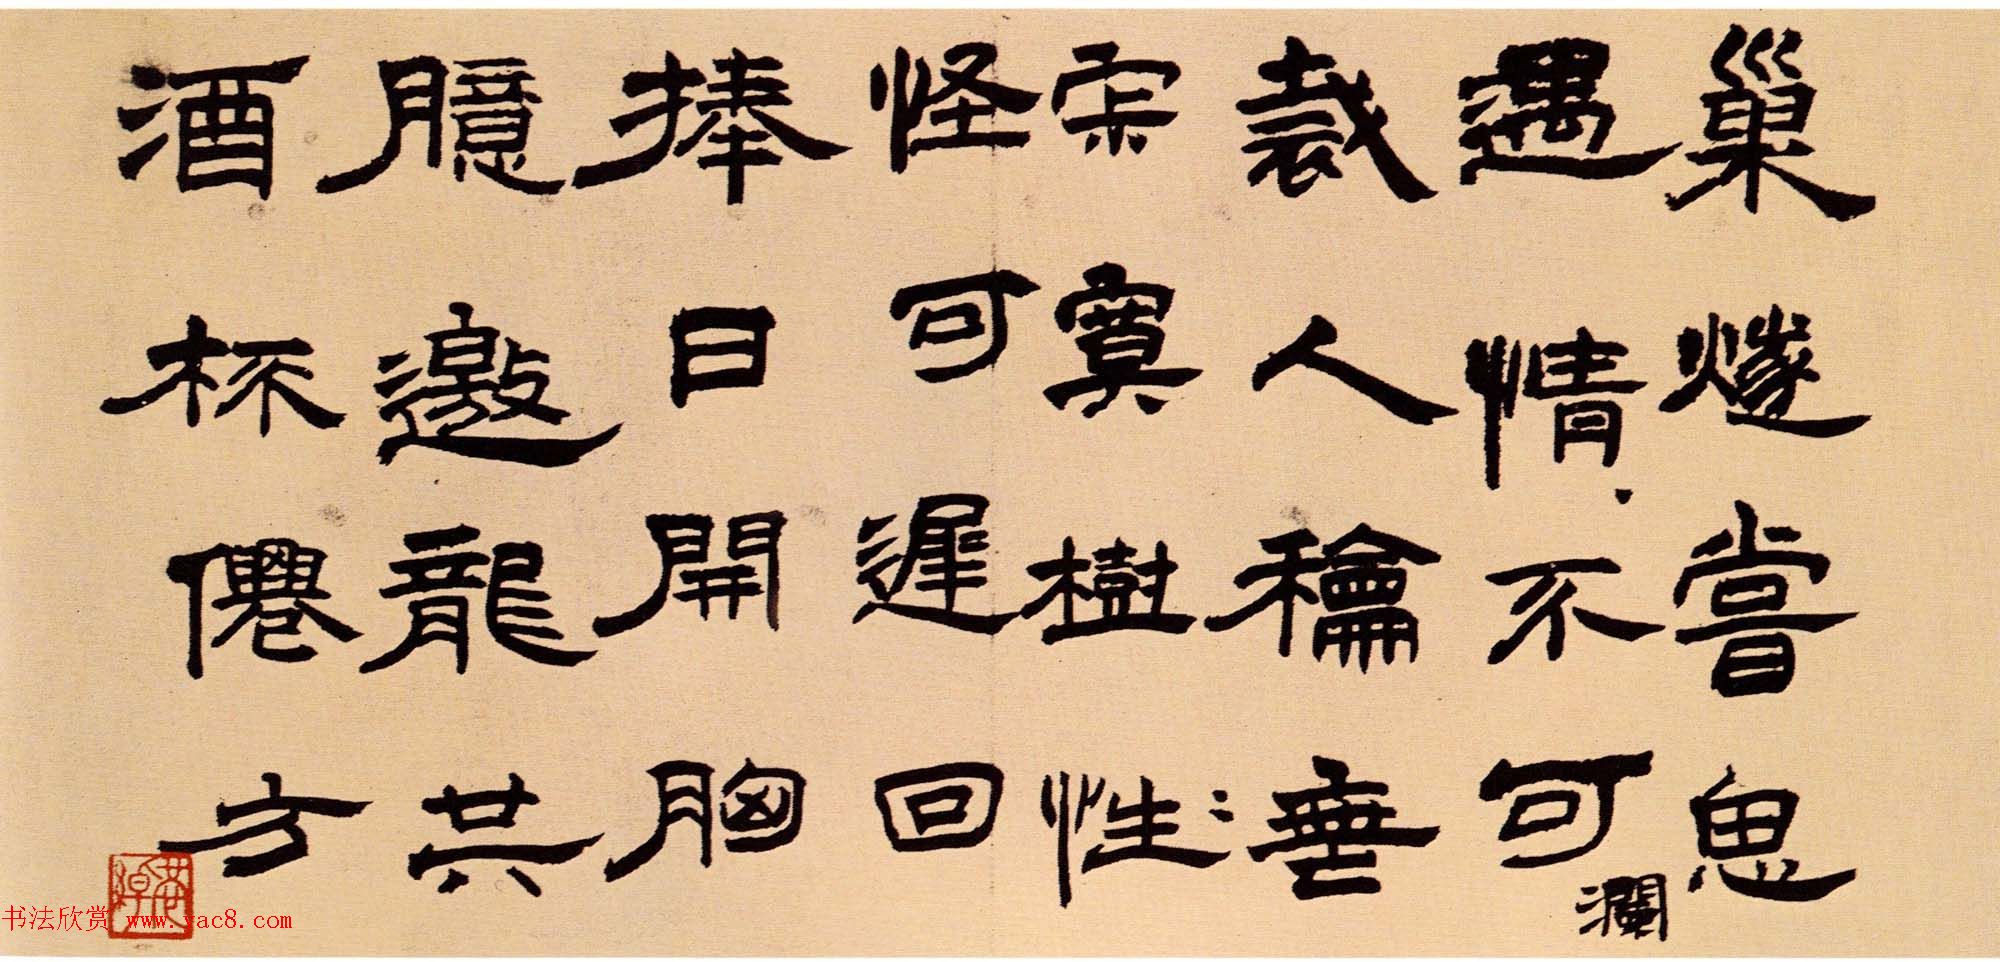 巢燧嘗思
遇情不可
瀾
裁人龠垂
寞樹性
怪可遲回
捧日開胸
臆邀龍共
酒杯僊方
书法欣赏 www.yac8.com